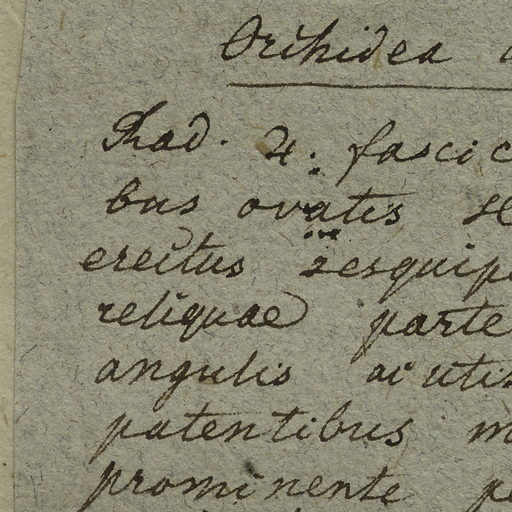 Orchidea
Rhad. 4: fascic
bus ovatis se
erectus sesquipe
reliquae parte
angulis acutis
patentibus m
prominente pe